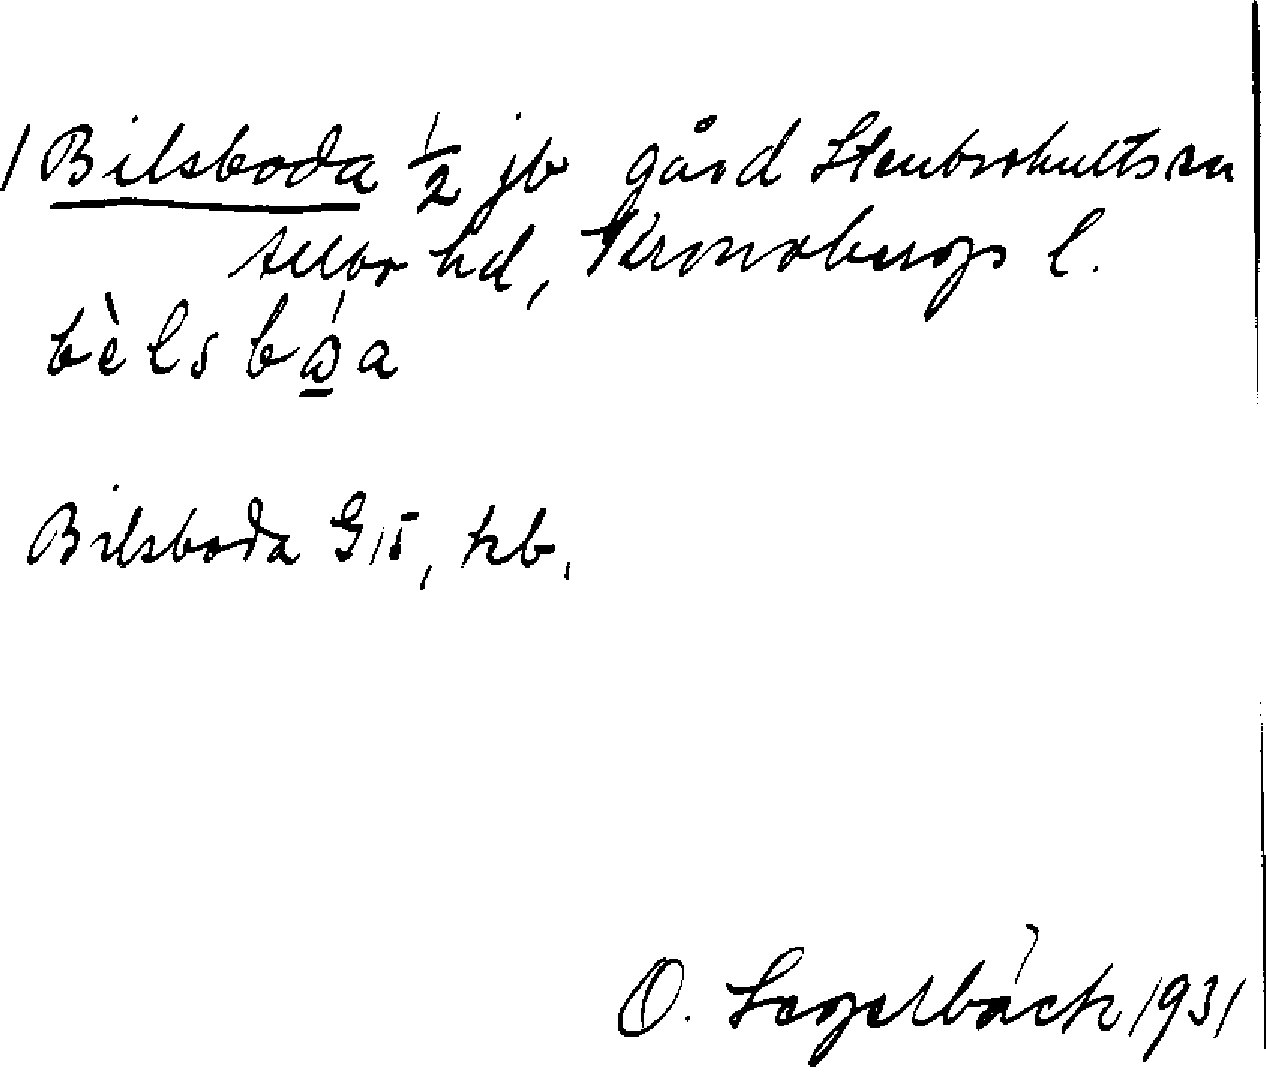 1 Bilsboda 1/2 jb gård Stenbrohults sn
Allbo hd, Kronobergs l.
bèlsbⱥ́a
Bilsboda G15, kb.
O. Segelbäck 1931